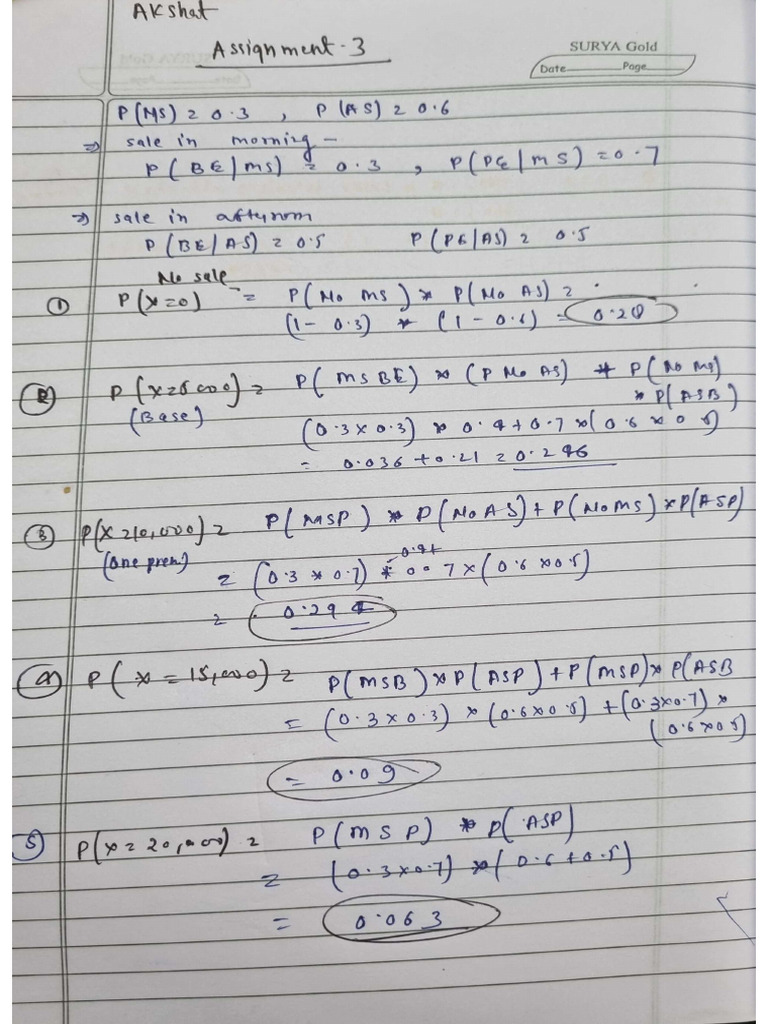 AKshat
Assignment-3
SURYA Gold
Date Page
P(MS) = 0.3 , P(AS) = 0.6
⇒ sale in morning –
P(BE|MS) = 0.3 , P(PE|MS) = 0.7
⇒ sale in afternom
P(BE|AS) = 0.5 P(PE|AS) = 0.5
No sale
① P(X=0) = P(No MS) * P(No AS) =
(1-0.3) * (1-0.6) = 0.28
② P(X=5000) = P(MSBE) * (P No AS) + P(No MS)
* P(ASB)
(Base)
(0.3 x 0.3) * 0.4 + 0.7 x (0.6 x 0.5)
= 0.036 + 0.21 = 0.246
③ P(X=10,000) = P(MSP) * P(No AS) + P(No MS) x P(ASP)
(one prem)
= (0.3 * 0.7) * 0.4+ 0.7 x (0.6 x 0.5)
= 0.294
④ P(X = 15,000) = P(MSB) * P(ASP) + P(MSP) * P(ASB
= (0.3 x 0.3) * (0.6 x 0.5) + (0.3 x 0.7) *
(0.6 x 0.5)
= 0.09
⑤ P(X = 20,000) = P(MSP) * P(ASP)
= (0.3 x 0.7) * (0.6 + 0.5)
= 0.063